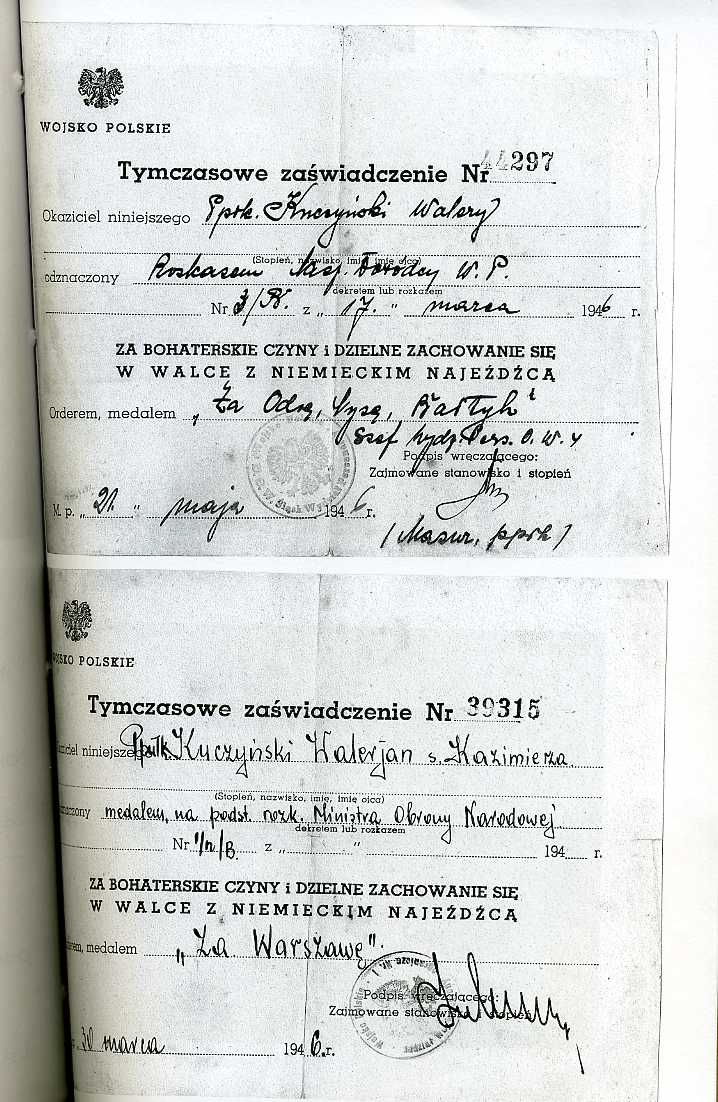 WOJSKO POLSKIE
Tymczasowe zaświadczenie Nr 44297
Okaziciel niniejszego Ppłk. Kuczyński Walery
(Stopień, nazwisko, imię, imię ojca)
odznaczony Roskasem Nacz. Dowódcy W. P.
dekretem lub rozkazem
Nr 3/ z „ 17. " marca 1946 r.
ZA BOHATERSKIE CZYNY i DZIELNE ZACHOWANIE SIĘ
W WALCE Z NIEMIECKIM NAJEŹDŹCĄ
Orderem, medalem „Za Odrę, Nysę, Bałtyk"
Szef Wydz. Pers. O. W. 4
Podpis wręczającego:
Zajmowane stanowisko i stopień
M. p. „ 21 " maja 1946 r.
(Masur, ppłk)
WOJSKO POLSKIE
Tymczasowe zaświadczenie Nr 39315
ziciel niniejszego Ppułk. Kuczyński Walerjan s. Kazimierza
(Stopień, nazwisko, imię, imię ojca)
znaczony medalem, na podst. rozk. Ministra Obrony Narodowej
dekretem lub rozkazem
Nr z „ " 194 r.
ZA BOHATERSKIE CZYNY i DZIELNE ZACHOWANIE SIĘ
W WALCE Z NIEMIECKIM NAJEŹDŹCĄ
erem, medalem „Za Warszawę".
Podpis wręczającego:
Zajmowane stanowisko i stopień
30 marca 1946. r.